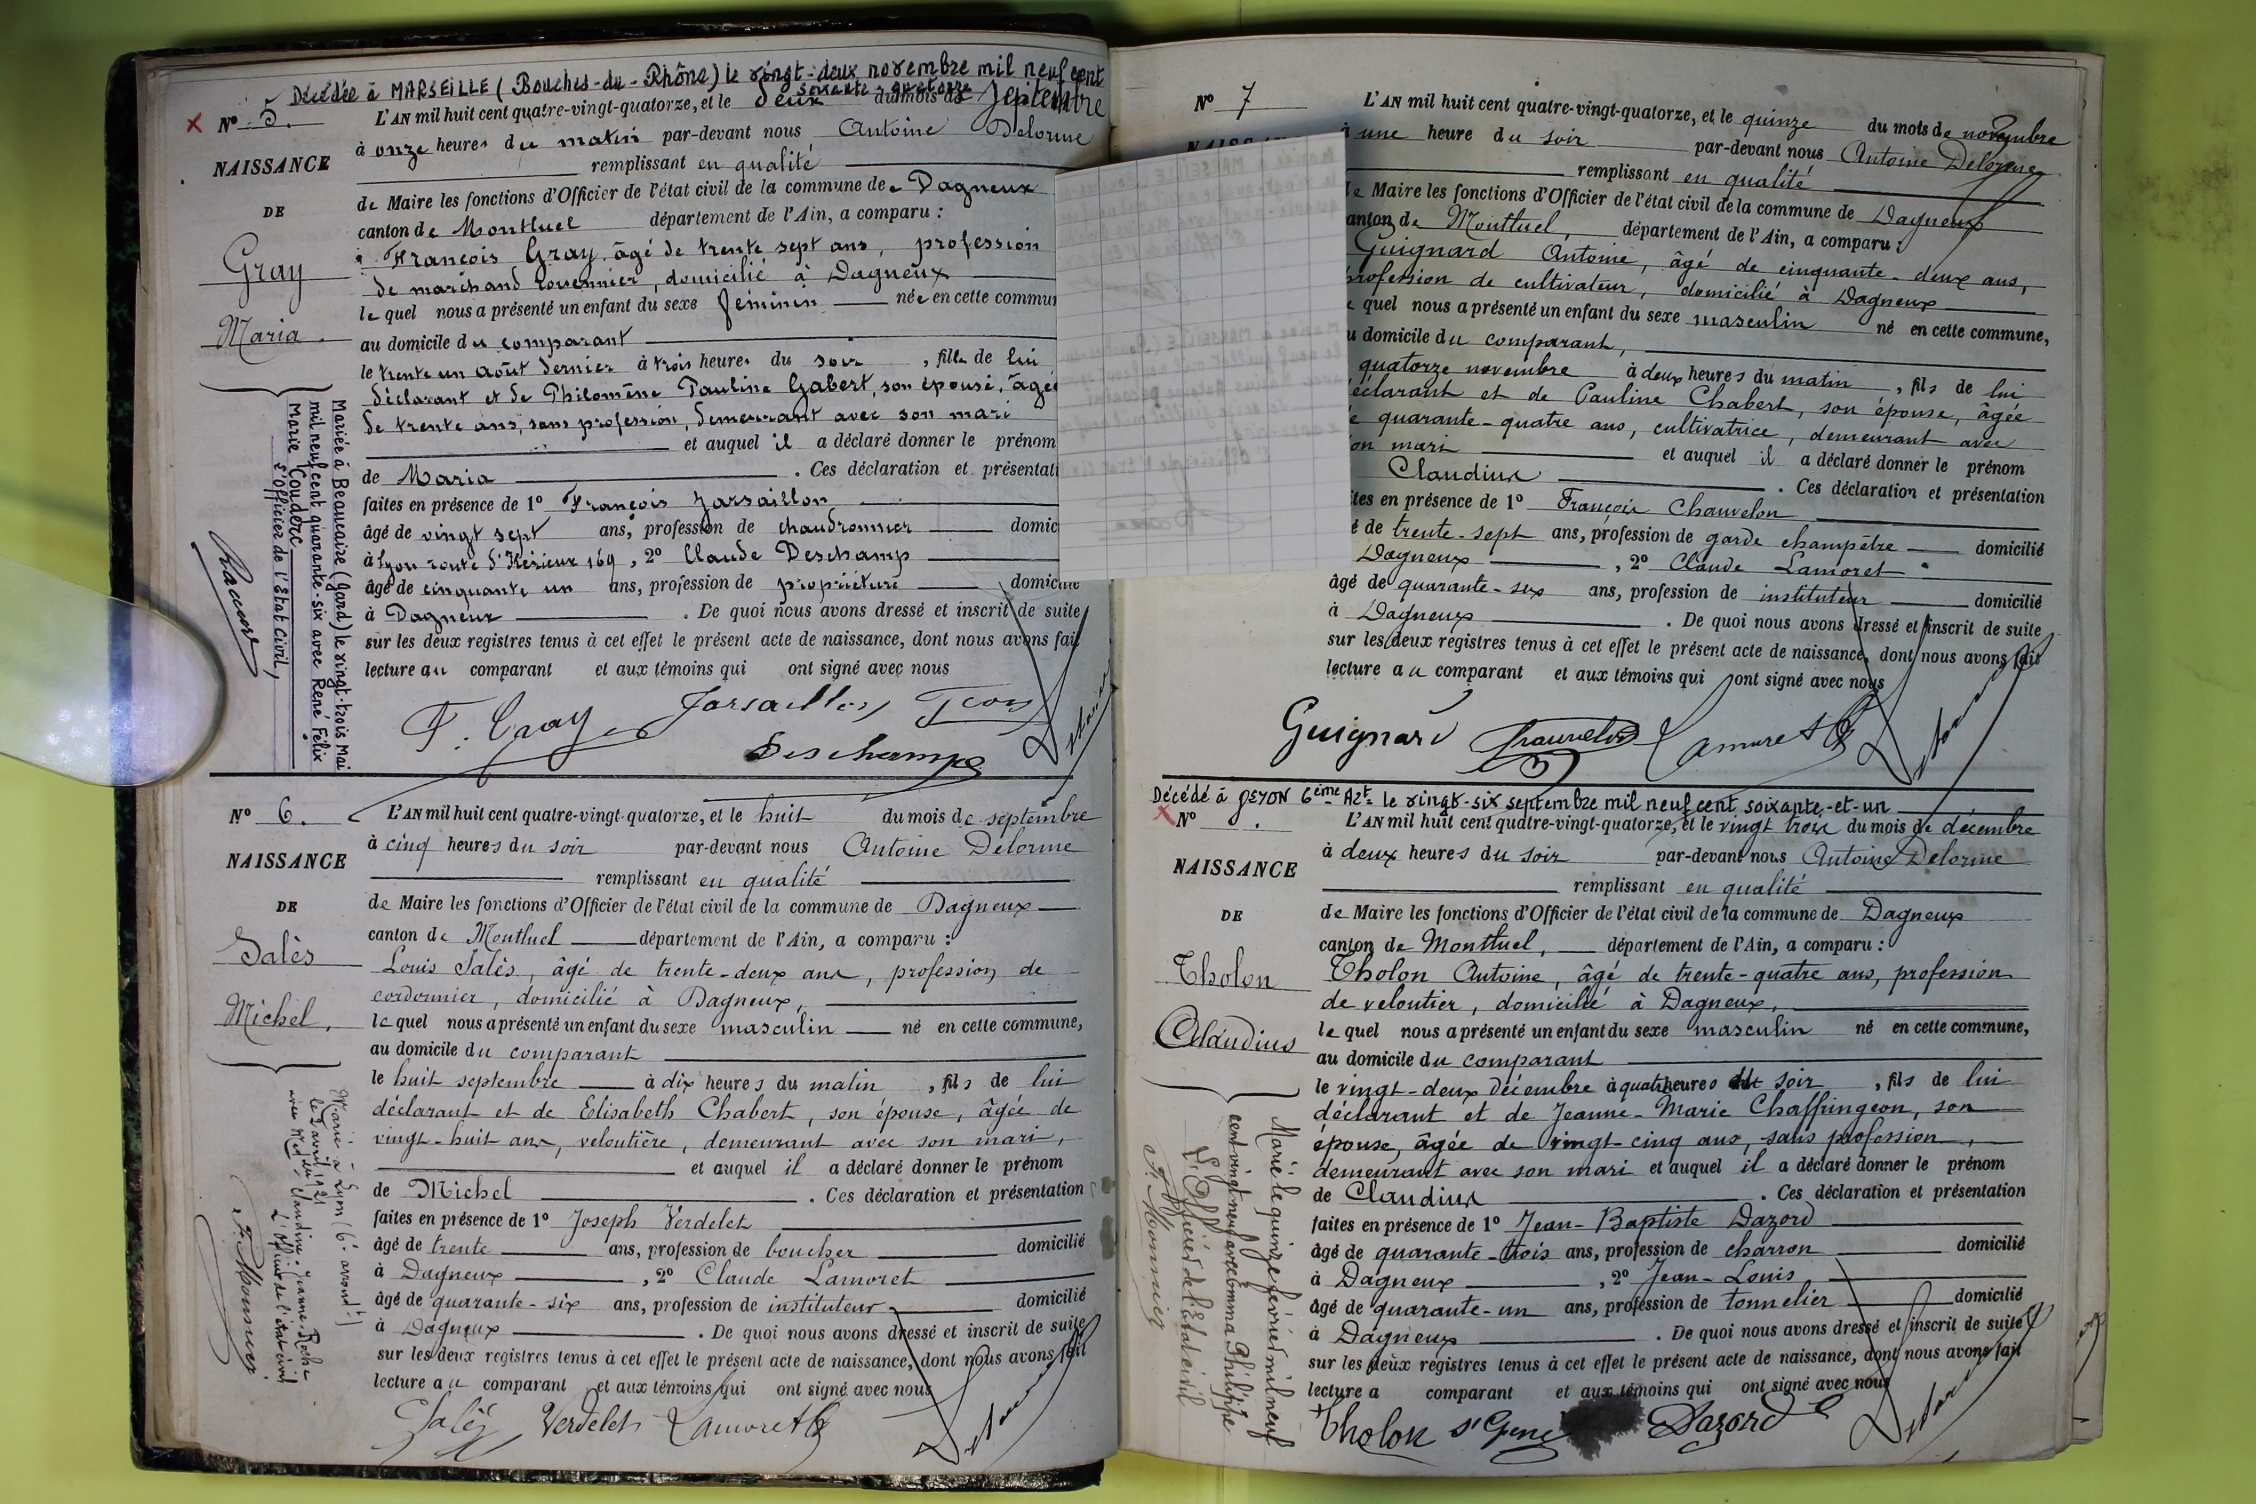 Décédée à MARSEILLE (Bouches-du-Rhône) le vingt-deux novembre mil neuf cent
soixante-quatorze
N° 5.
NAISSANCE
DE
Gray
Maria
L'AN mil huit cent quatre-vingt-quatorze, et le deux du mois de septembre
à onze heures du matin par-devant nous Antoine Delorme
remplissant en qualité
de Maire les fonctions d'Officier de l'état civil de la commune de Dagneux
canton de Montluel département de l'Ain, a comparu :
François Gray, âgé de trente sept ans, profession
de marchand, domicilié à Dagneux
lequel nous a présenté un enfant du sexe féminin née en cette commun
au domicile du comparant
le trente un août dernier à trois heures du soir, fille de lui
déclarant et de Philomène Pauline Gabert, son épouse, âgée
de trente ans, sans profession, demeurant avec son mari
et auquel il a déclaré donner le prénom
de Maria. Ces déclaration et présentati
faites en présence de 1° François Jarsaillon
âgé de vingt sept ans, profession de chaudronnier domic
à Lyon route d'Hérieux 169, 2° Claude Deschamp
âgé de cinquante un ans, profession de domicilié
à Dagneux. De quoi nous avons dressé et inscrit de suite
sur les deux registres tenus à cet effet le présent acte de naissance, dont nous avons fait
lecture au comparant et aux témoins qui ont signé avec nous
F. Gray Jarsaillon
Deschamps
Mariée à Beaucaire (Gard) le vingt-trois Mai
mil neuf cent quarante-six avec René Félix
Marie Couderc
L'officier de l'Etat civil,
N° 6.
NAISSANCE
DE
Salès
Michel.
L'AN mil huit cent quatre-vingt-quatorze, et le huit du mois de septembre
à cinq heures du soir par-devant nous Antoine Delorme
remplissant en qualité
de Maire les fonctions d'Officier de l'état civil de la commune de Dagneux
canton de Montluel département de l'Ain, a comparu :
Louis Salès, âgé de trente-deux ans, profession de
cordonnier, domicilié à Dagneux,
lequel nous a présenté un enfant du sexe masculin né en cette commune,
au domicile du comparant
le huit septembre à dix heures du matin, fils de lui
déclarant et de Elisabeth Chabert, son épouse, âgée de
vingt-huit ans, veloutière, demeurant avec son mari,
et auquel il a déclaré donner le prénom
de Michel. Ces déclaration et présentation
faites en présence de 1° Joseph Verdelet
âgé de trente ans, profession de boucher domicilié
à Dagneux, 2° Claude Lamoret
âgé de quarante-six ans, profession de instituteur domicilié
à Dagneux. De quoi nous avons dressé et inscrit de suite
sur les deux registres tenus à cet effet le présent acte de naissance, dont nous avons fait
lecture au comparant et aux témoins qui ont signé avec nous
Salès Verdelet Lamoret
Marié à Lyon (6e arrond.t)
le 7 avril 1921
avec Claudine-Jeanne-
L'officier de l'état civil
F. Monnier
N° 7
L'AN mil huit cent quatre-vingt-quatorze, et le quinze du mois de novembre
à une heure du soir par-devant nous Antoine Delorme
remplissant en qualité
de Maire les fonctions d'Officier de l'état civil de la commune de Dagneux
canton de Montluel, département de l'Ain, a comparu :
Guignard Antoine, âgé de cinquante-deux ans,
profession de cultivateur, domicilié à Dagneux
quel nous a présenté un enfant du sexe masculin né en cette commune,
domicile du comparant,
quatorze novembre à deux heures du matin, fils de lui
déclarant et de Pauline Chabert, son épouse, âgée
quarante-quatre ans, cultivatrice, demeurant avec
son mari et auquel il a déclaré donner le prénom
Claudius. Ces déclaration et présentation
ites en présence de 1° François Chauvelon
é de trente-sept ans, profession de garde champêtre domicilié
Dagneux, 2° Claude Lamoret
âgé de quarante-six ans, profession de instituteur domicilié
à Dagneux. De quoi nous avons dressé et inscrit de suite
sur les deux registres tenus à cet effet le présent acte de naissance, dont nous avons fait
lecture au comparant et aux témoins qui ont signé avec nous
Guignard Chauvelon Lamoret
Décédé à LYON 6ème Arrt le vingt-six septembre mil neuf cent soixante-et-un
N°
NAISSANCE
DE
Tholon
Claudius
L'AN mil huit cent quatre-vingt-quatorze, et le vingt trois du mois de décembre
à deux heures du soir par-devant nous Antoine Delorme
remplissant en qualité
de Maire les fonctions d'Officier de l'état civil de la commune de Dagneux
canton de Montluel, département de l'Ain, a comparu :
Tholon Antoine, âgé de trente-quatre ans, profession
de veloutier, domicilié à Dagneux,
lequel nous a présenté un enfant du sexe masculin né en cette commune,
au domicile du comparant
le vingt-deux décembre à quatre heures du soir, fils de lui
déclarant et de Jeanne-Marie Chaffringeon, son
épouse, âgée de vingt-cinq ans, sans profession,
demeurant avec son mari et auquel il a déclaré donner le prénom
de Claudius. Ces déclaration et présentation
faites en présence de 1° Jean-Baptiste Dazord
âgé de quarante-trois ans, profession de charron domicilié
à Dagneux, 2° Jean-Louis
âgé de quarante-un ans, profession de tonnelier domicilié
à Dagneux. De quoi nous avons dressé et inscrit de suite
sur les deux registres tenus à cet effet le présent acte de naissance, dont nous avons fait
lecture a comparant et aux témoins qui ont signé avec nous
Tholon Dazord
Marié le quinze février mil neuf
cent vingt neuf avec Emma Philippe
L'Officier de l'Etat civil
F. Monnier